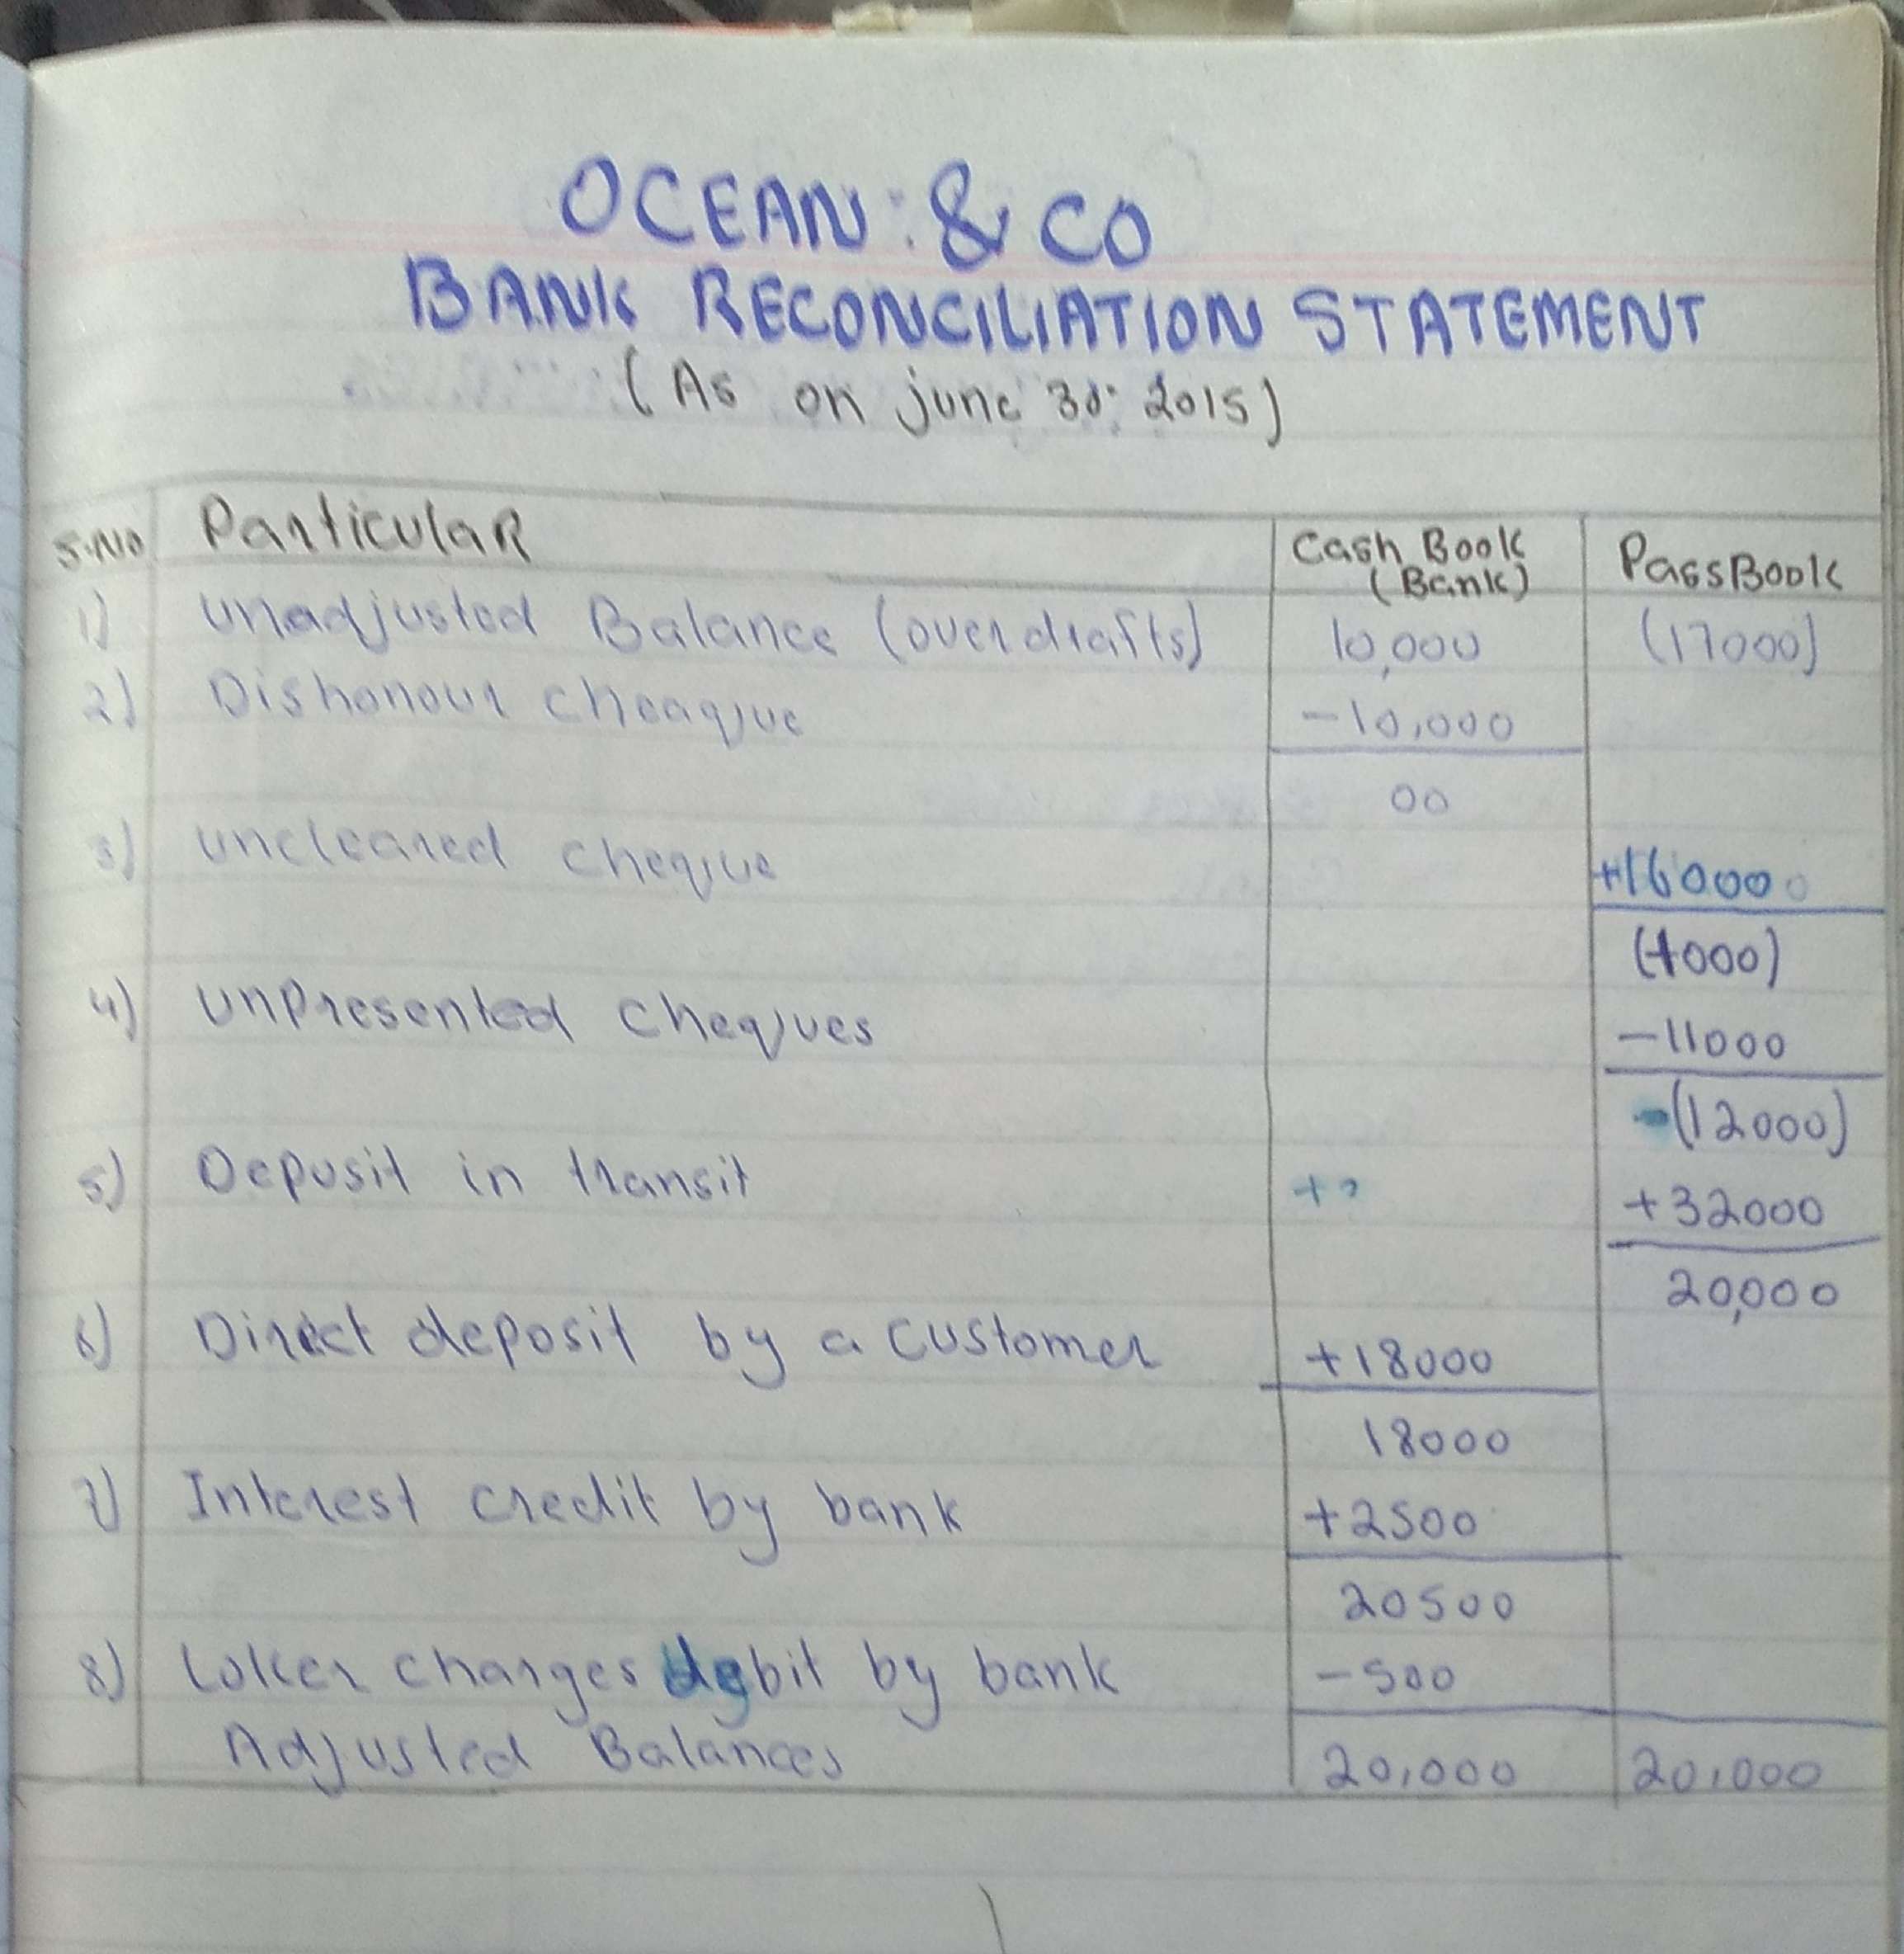 OCEAN & CO
BANK RECONCILIATION STATEMENT
(As on june 30, 2015)
S.No Particular Cash Book (Bank) PassBook
1) unadjusted Balance (overdrafts) 10,000 (17000)
2) Dishonour cheaque -10,000
00
3) uncleared cheque +16000
(1000)
4) unpresented cheques -11000
-(12000)
5) Deposit in transit + +32000
20,000
6) Direct deposit by a customer +18000
18000
7) Interest credit by bank +2500
20500
8) Loker charges debit by bank -500
Adjusted Balances 20,000 20,000